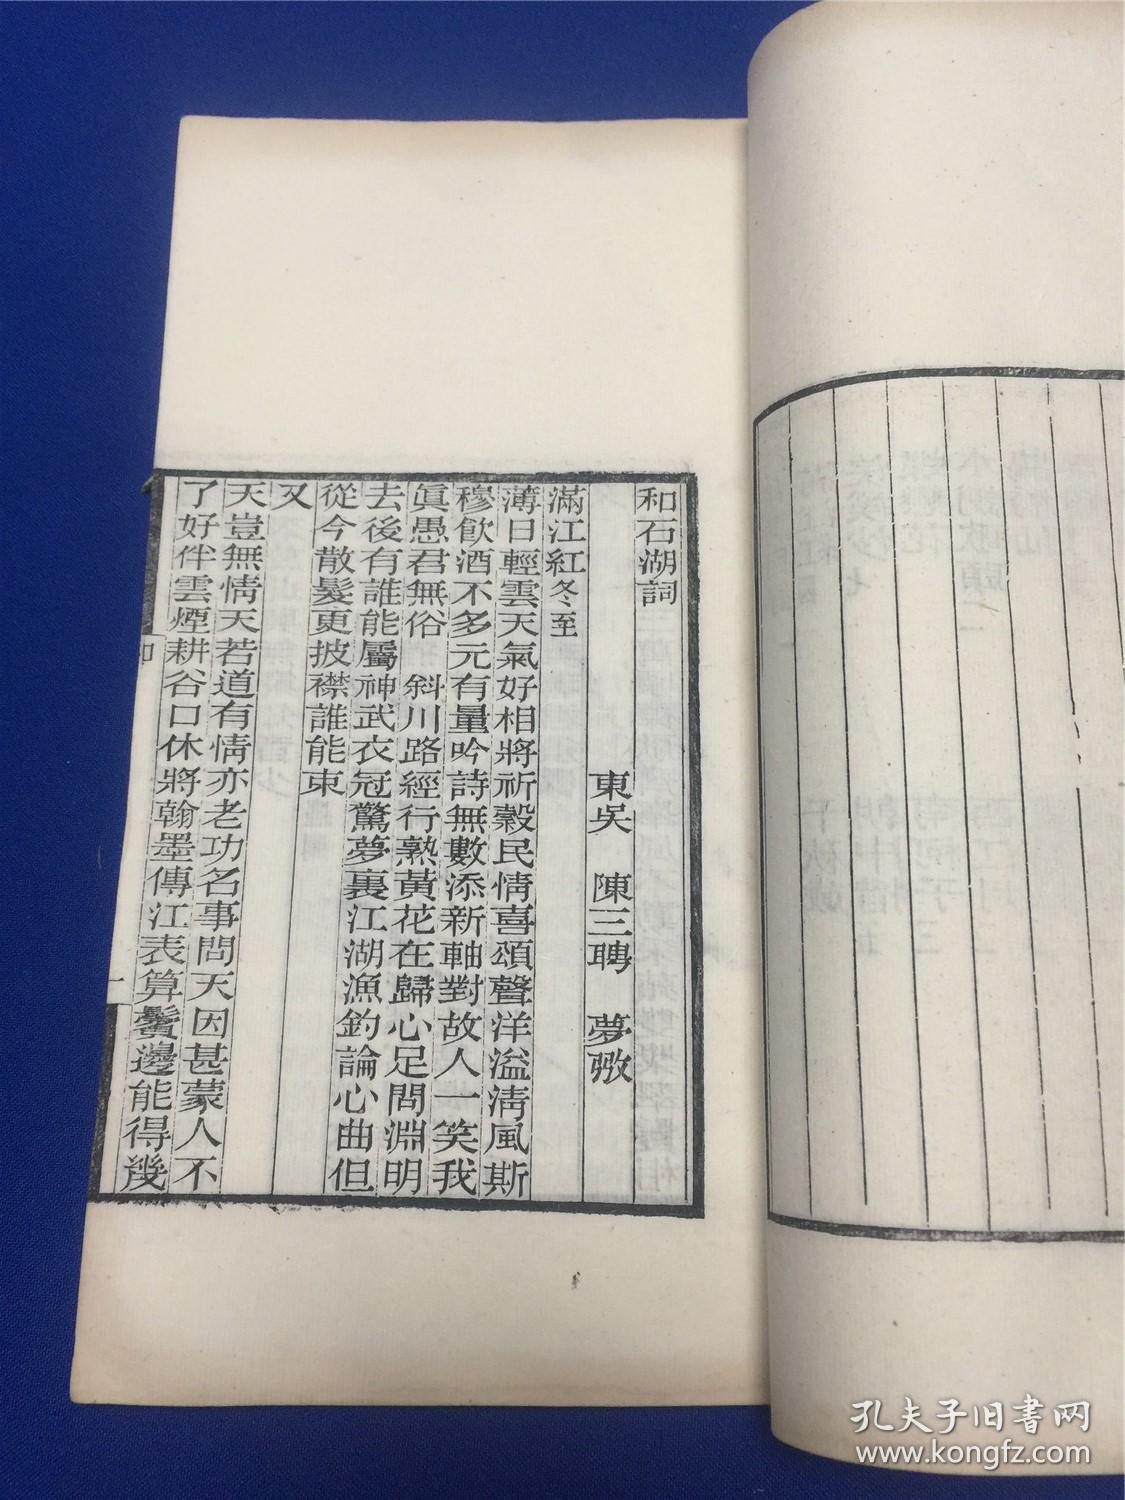 和石湖詞
東吳 陳三聘 夢弢
滿江紅冬至
薄日輕雲天氣好相將祈穀民情喜頌聲洋溢淸風斯
穆飮酒不多元有量吟詩無數添新軸對故人一笑我
眞愚君無俗 斜川路經行熟黃花在歸心足問淵明
去後有誰能屬神武衣冠驚夢裏江湖漁釣論心曲但
從今散髮更披襟誰能束
又
天豈無情天若道有情亦老功名事問天因甚蒙人不
了好伴雲煙耕谷口休將翰墨傳江表算鬢邊能得幾
孔夫子旧書网
www.kongfz.com